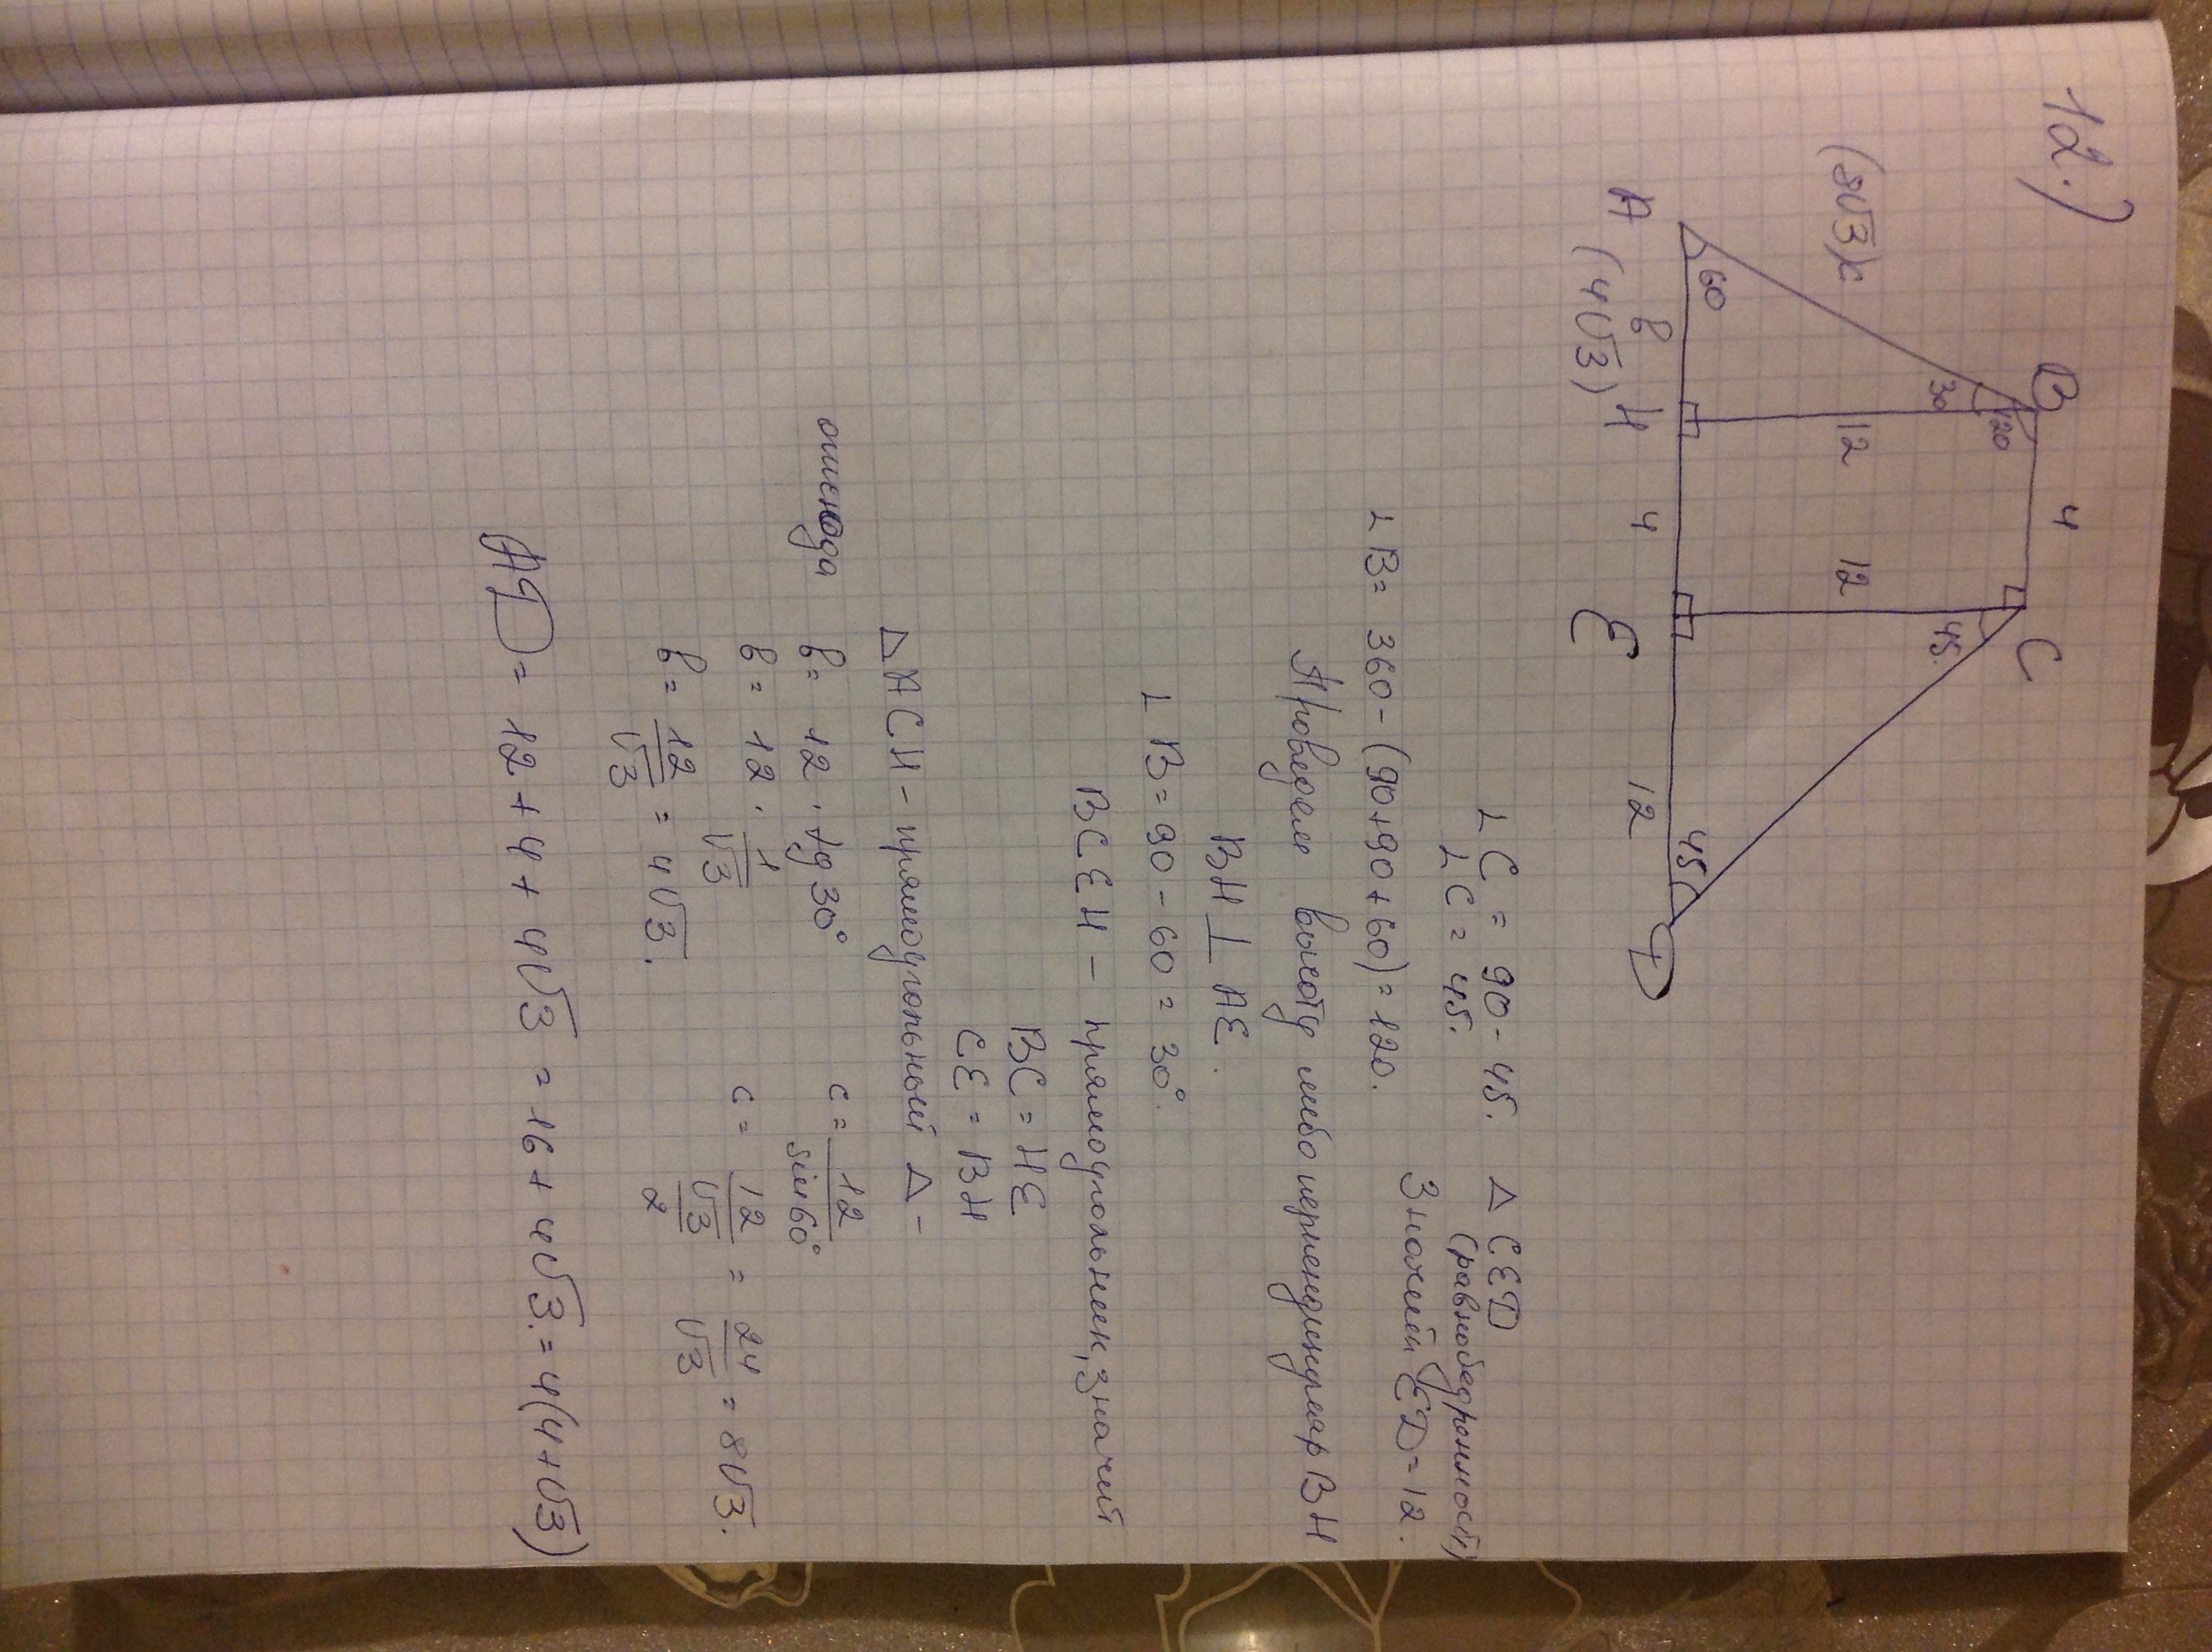 12.)
B 4 C
120
30
45.
(8√3)c
12
12
60
45
A b H 4 E 12 D
(4√3)
∟C = 90 - 45.
∟C = 45.
△ CED
(равнобедренность)
Значит ED = 12.
∟B = 360 - (90+90+60) = 120.
Проведем высоту либо перпендикуляр BH
BH ⊥ AE.
∟B = 90 - 60 = 30°.
BCEH - прямоугольник, значит
BC = HE
CE = BH
△ACH - прямоугольный △ -
отсюда b = 12 · tg 30°
c = 12/sin 60°
b = 12 · 1/√3
c = 12/(√3/2) = 24/√3 = 8√3.
b = 12/√3 = 4√3.
AD = 12 + 4 + 4√3 = 16 + 4√3. = 4(4+√3)